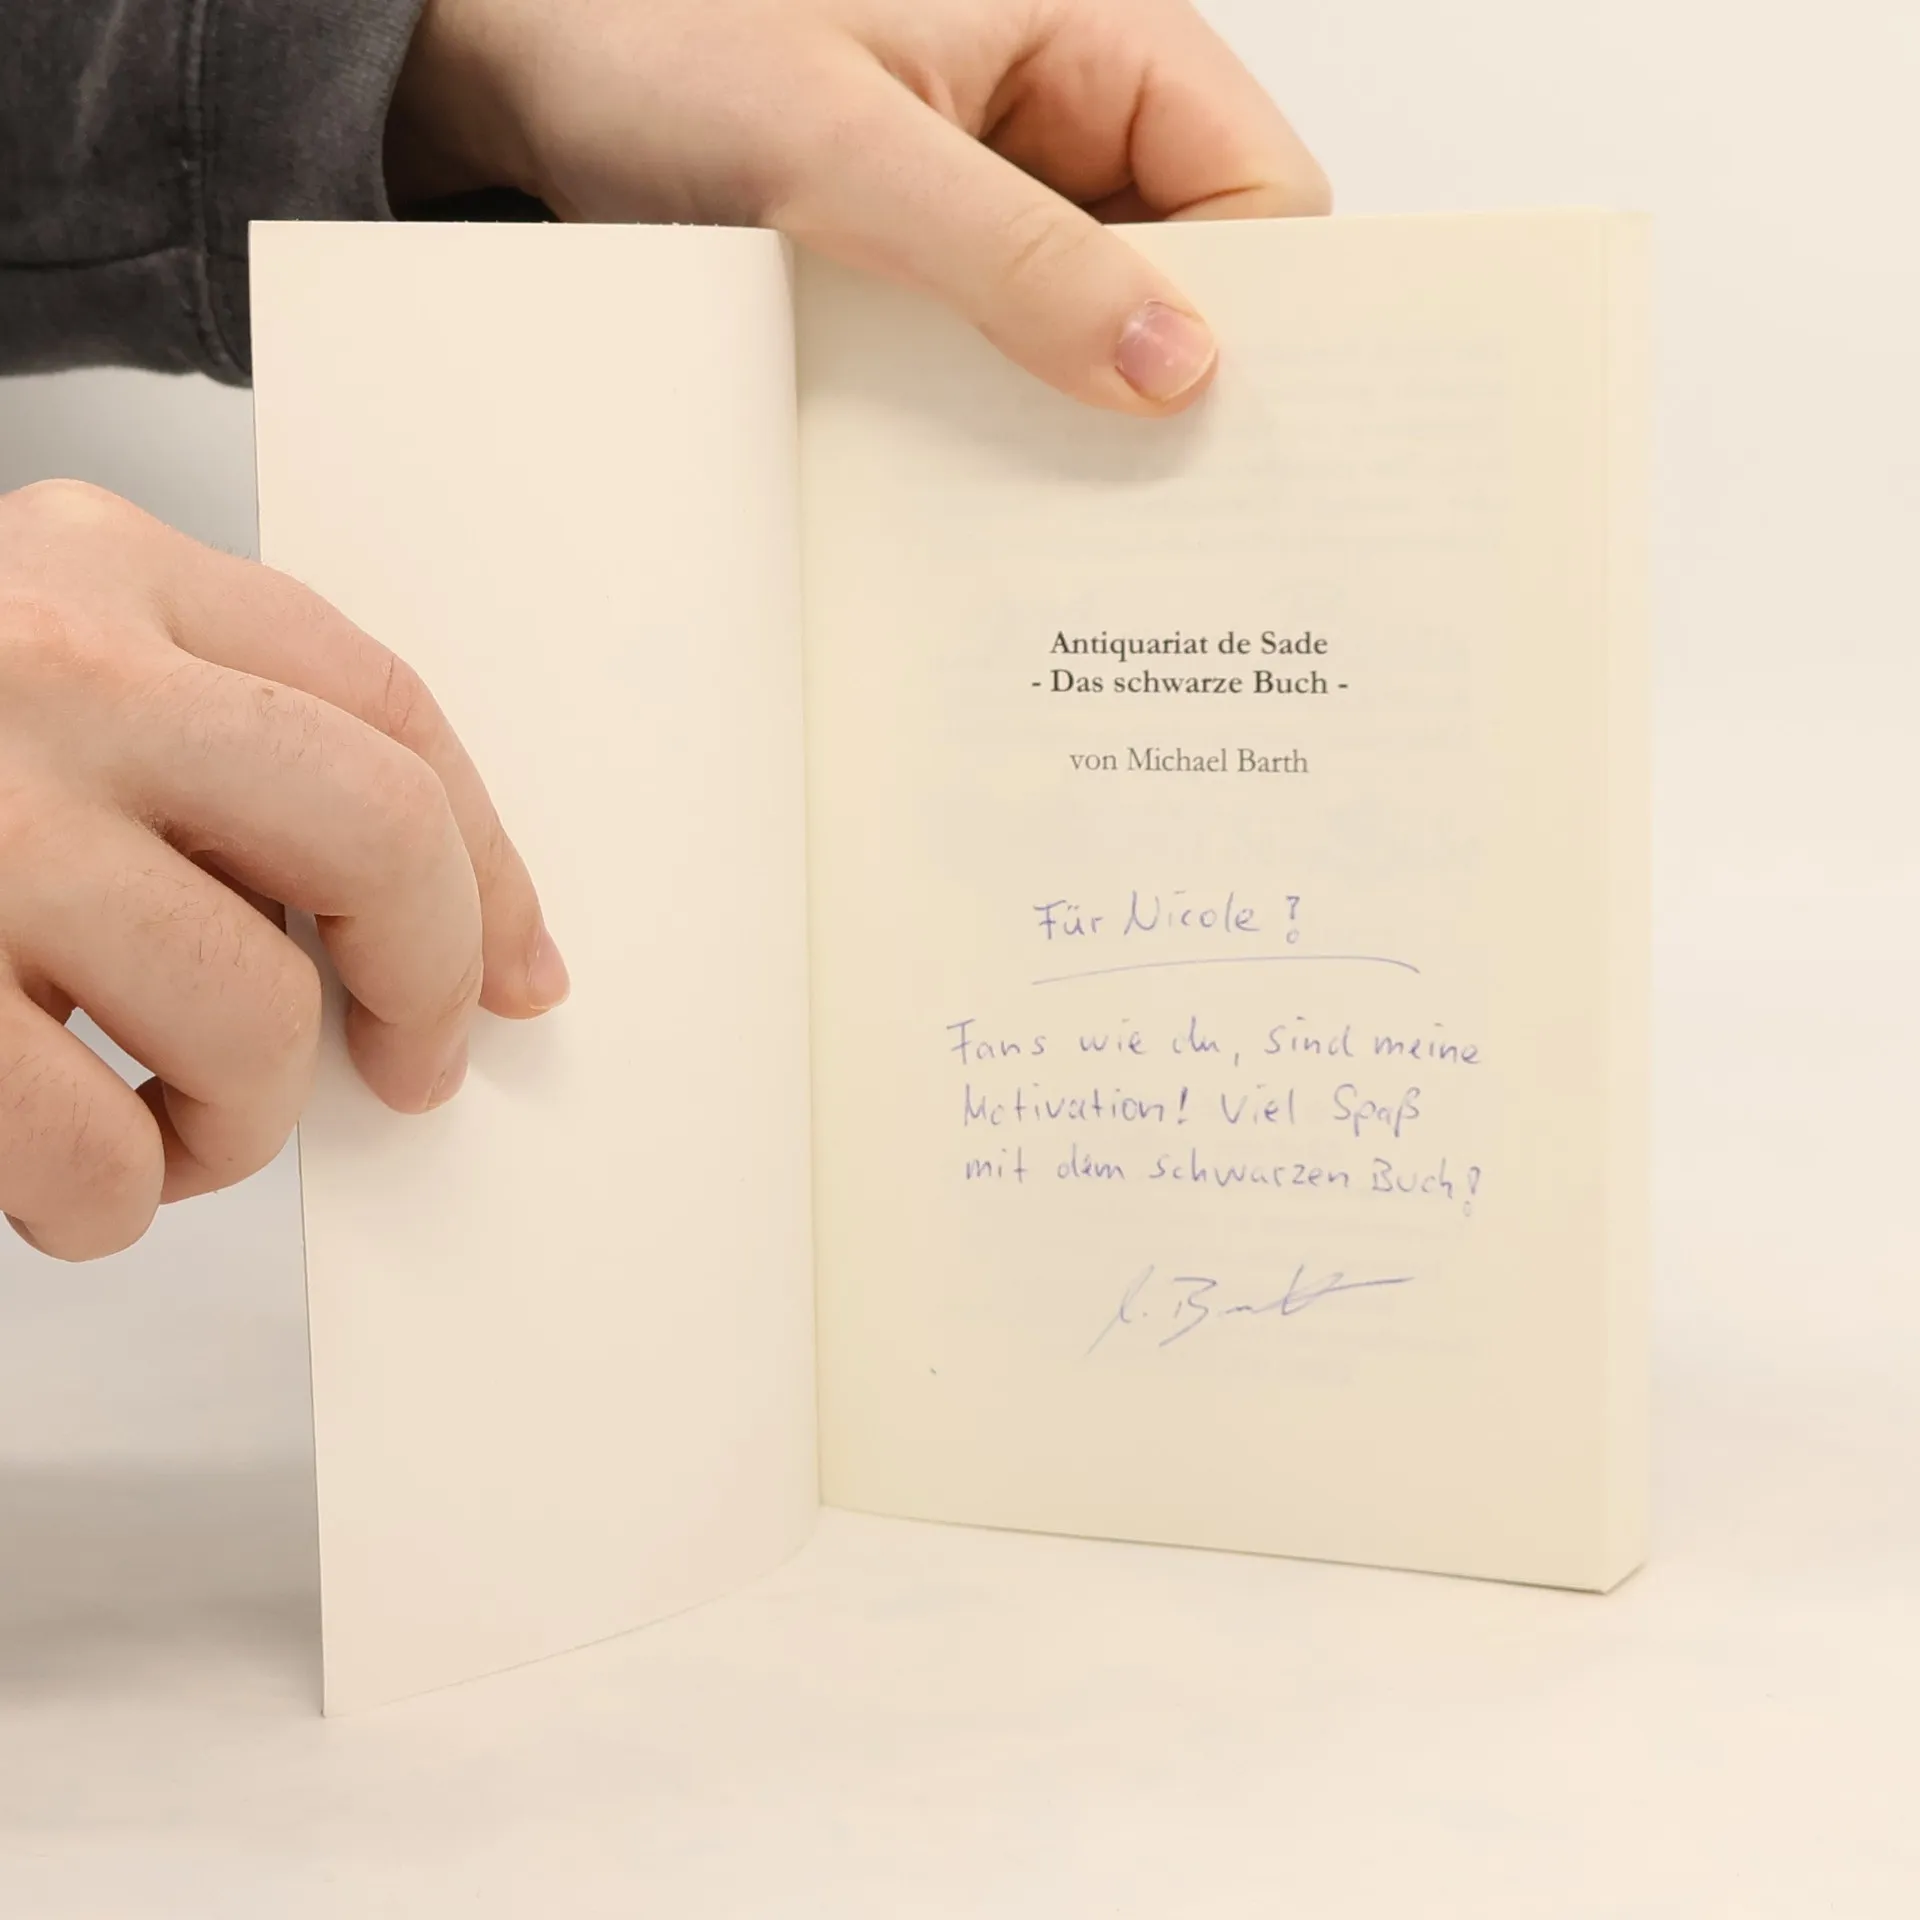 Antiquariat de Sade
- Das schwarze Buch -
von Michael Barth
Für Nicole!
Fans wie du, sind meine
Motivation! Viel Spaß
mit dem schwarzen Buch!
M. Barth